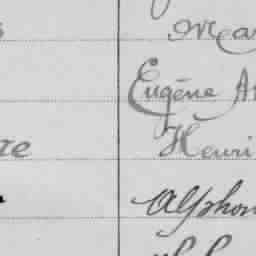 Mar
Eugène A
re Henri
Alphon